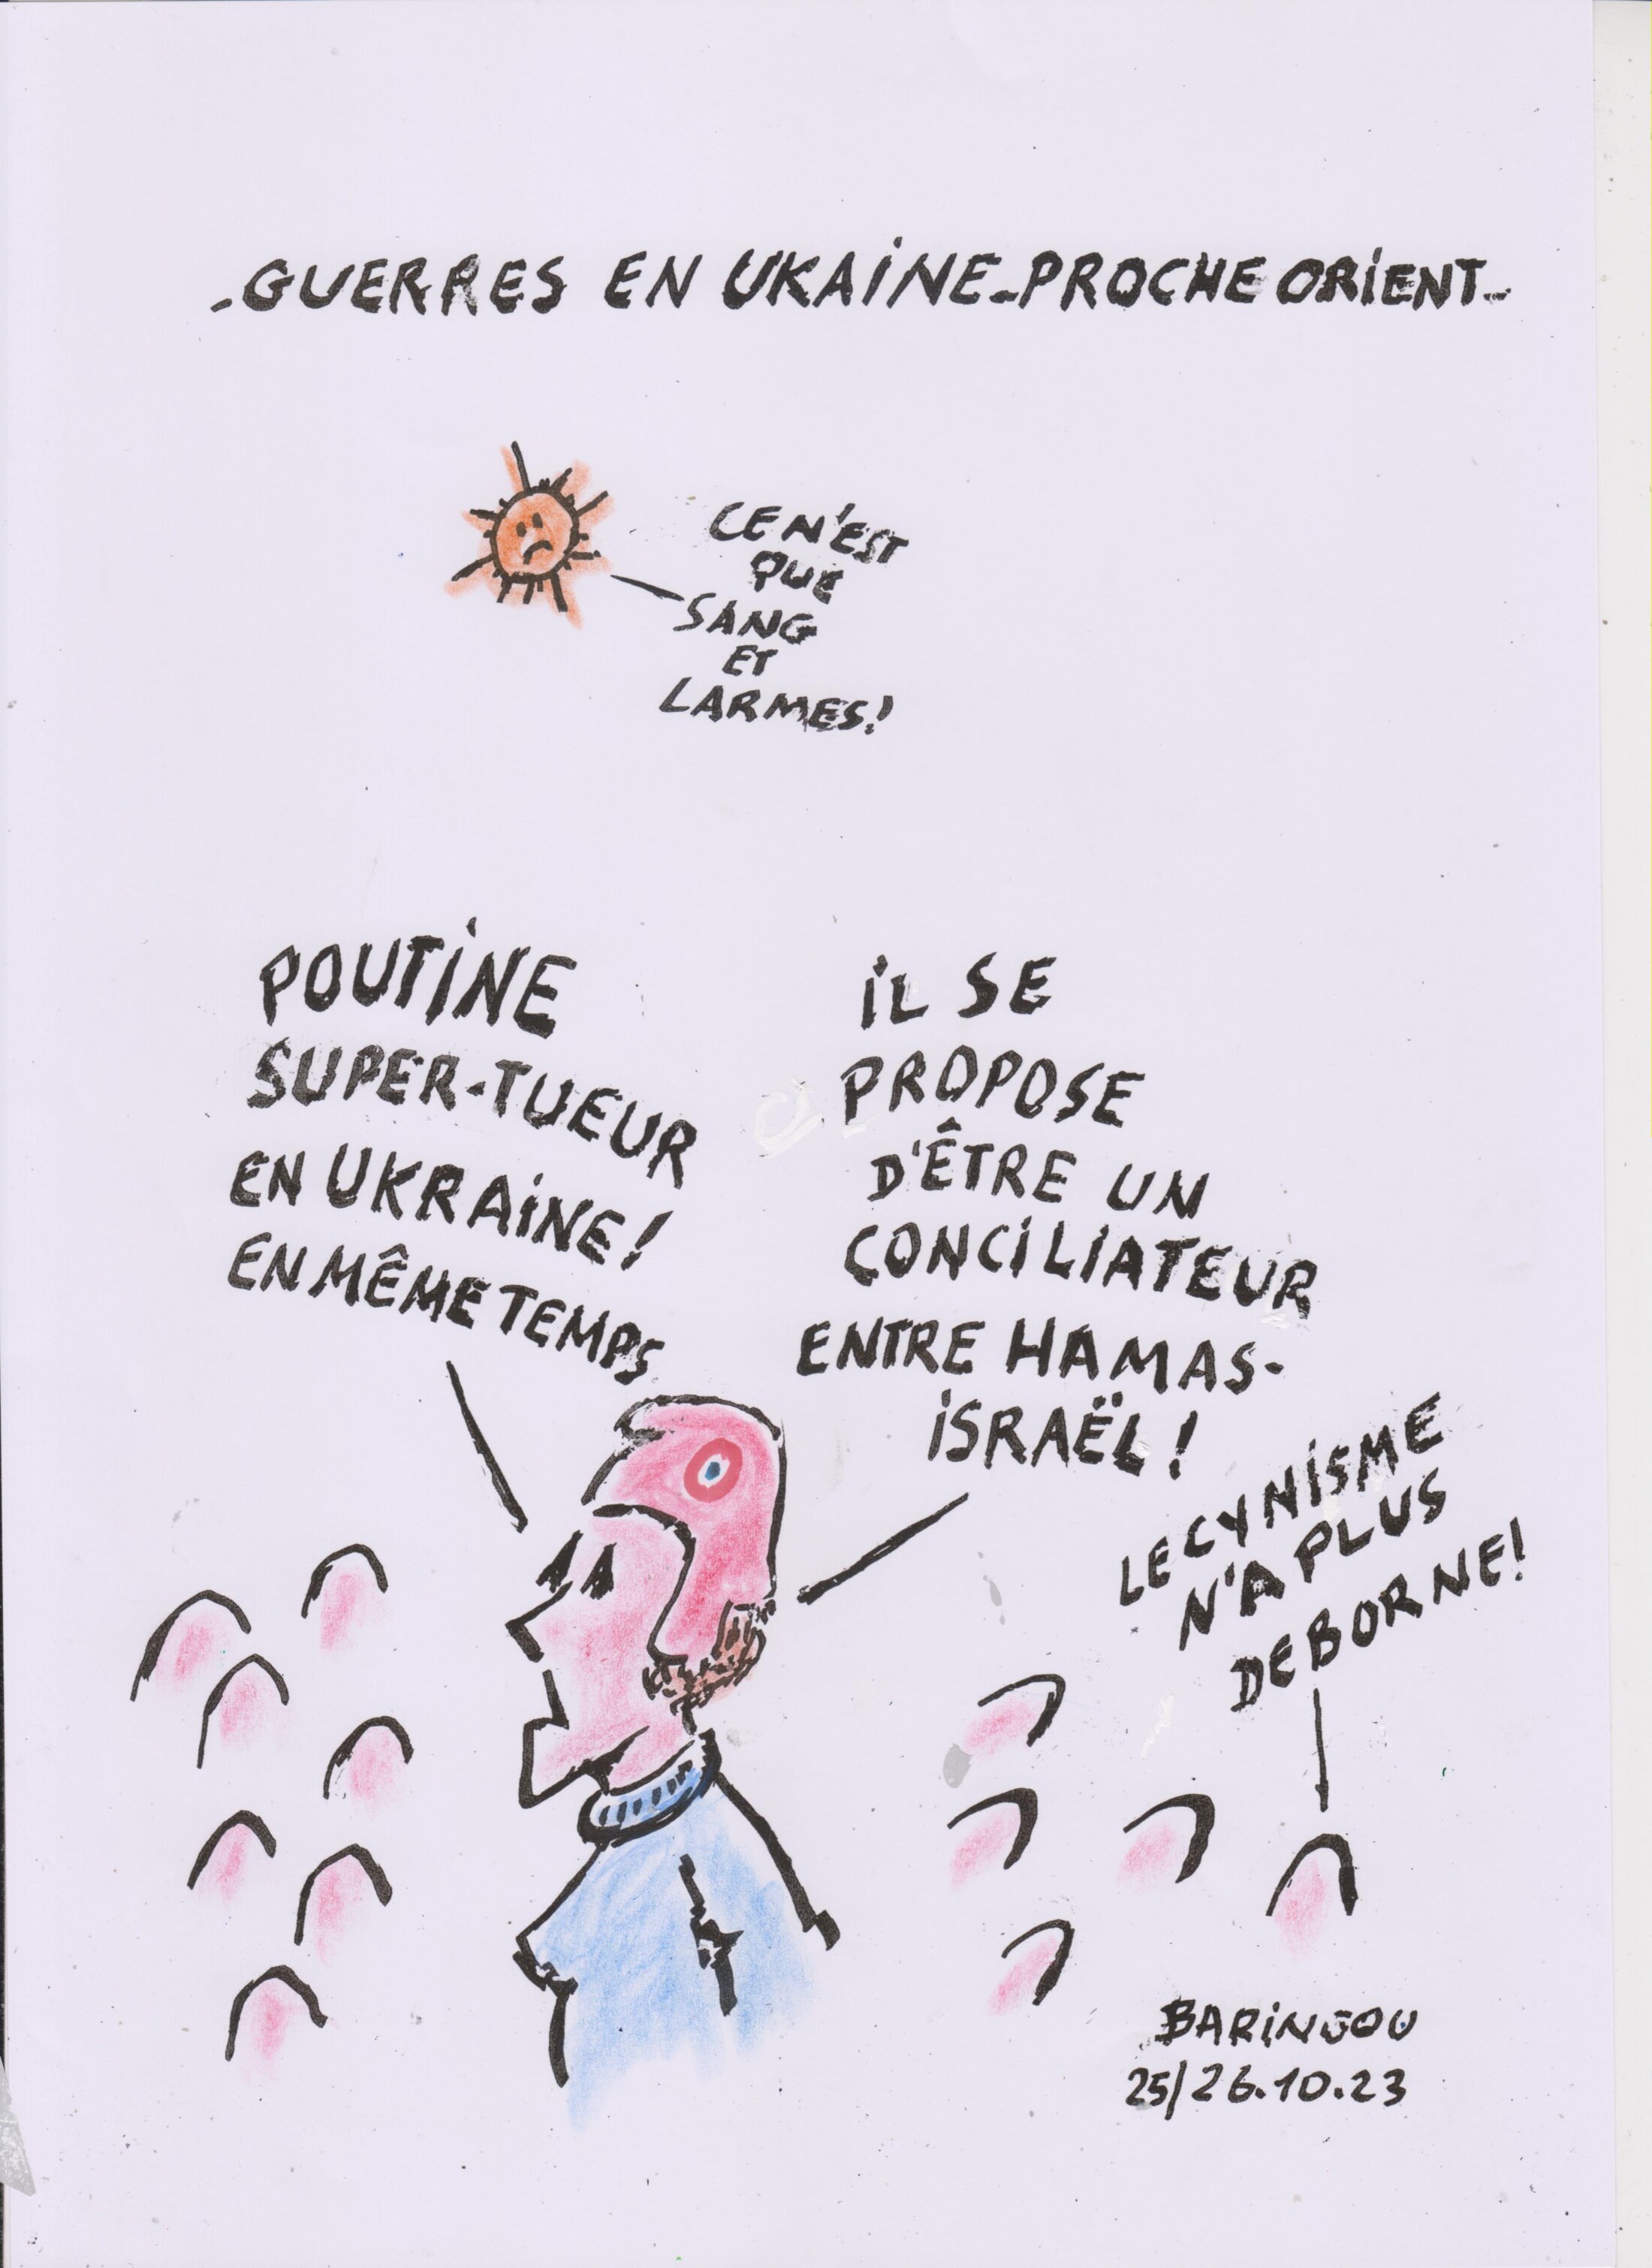 -GUERRES EN UKAINE-PROCHE ORIENT-
CE N'EST
QUE
SANG
ET
LARMES!
POUTINE
SUPER-TUEUR
EN UKRAINE!
EN MÊME TEMPS
IL SE
PROPOSE
D'ÊTRE UN
CONCILIATEUR
ENTRE HAMAS-
ISRAËL!
LE CYNISME
N'A PLUS
DE BORNE!
BARINJOU
25/26.10.23